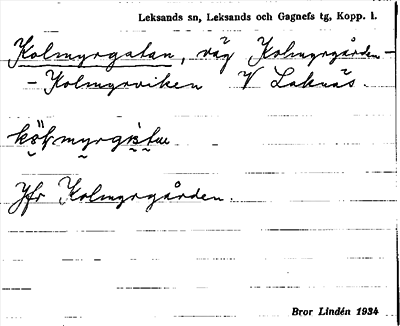 Leksands sn, Leksands och Gagnefs tg, Kopp. l.
Kolmyrgatan, väg Kolmyrgården –
– Kolmyrviken V Laknäs.
Jfr Kolmyrgården.
Bror Lindén 1934